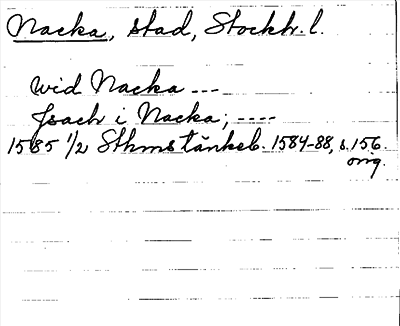 Nacka, stad, Stockh. l.
wid Nacka ---
Jsach i Nacka, ----
1585 1/2 Sthms tänkeb. 1584-88, s. 156.
orig.